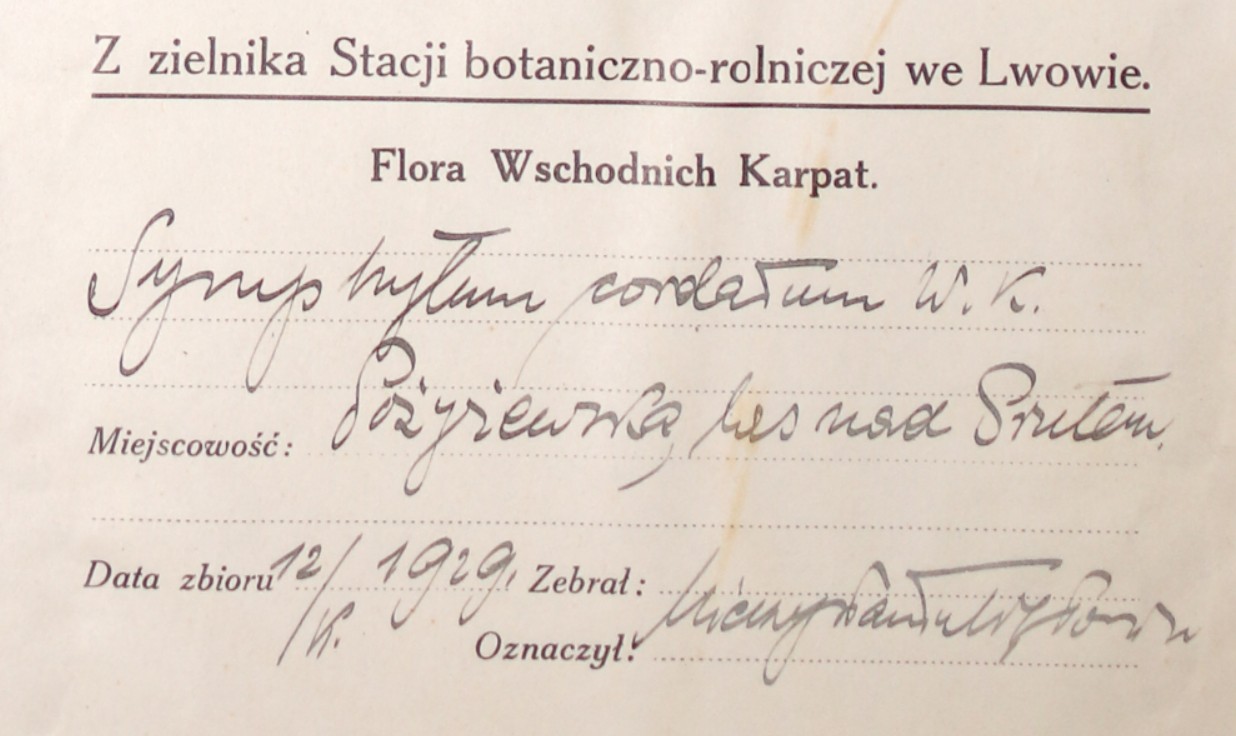 Z zielnika Stacji botaniczno-rolniczej we Lwowie.
Flora Wschodnich Karpat.
Symphytum cordatum W. K.
Miejscowość: Pożyżewska, las nad Prutem,
Data zbioru 12/ 1929. Zebrał:
Oznaczył: